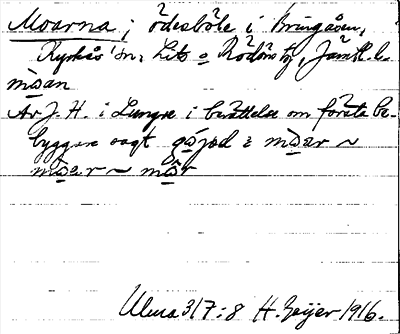 Moarna ; ödesböle i Brungåsen,
Kyrkås sn, Lits o Rödöns tg, Jämtl. l.
måan
Av J. H. i Lungre i berättelse om första be-
byggare sagt gåjað i måar ~
måar ~ mår
Ulma 317:8 H. Geijer 1916.